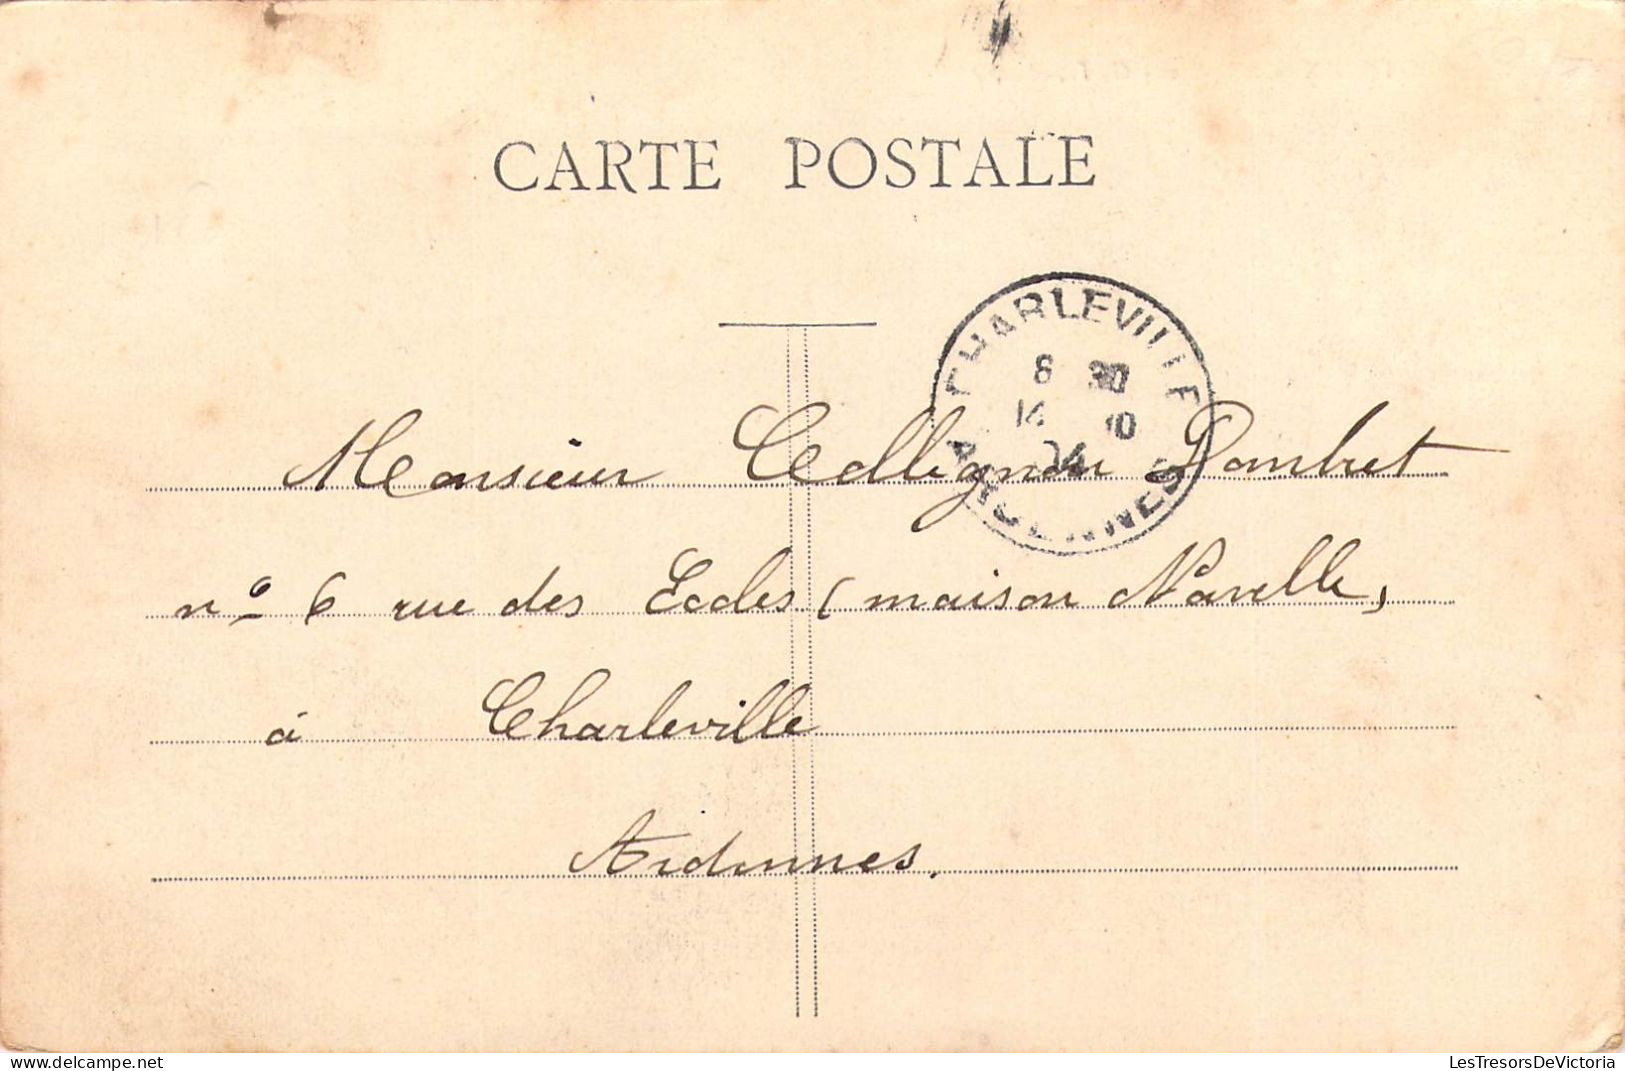 CARTE POSTALE
CHARLEVILLE
8 30
14 10
04
ARDENNES
Monsieur Collignon Pombret
n° 6 rue des Ecoles (maison Navelle,
à Charleville
Ardennes.
www.delcampe.net
LesTresorsDeVictoria